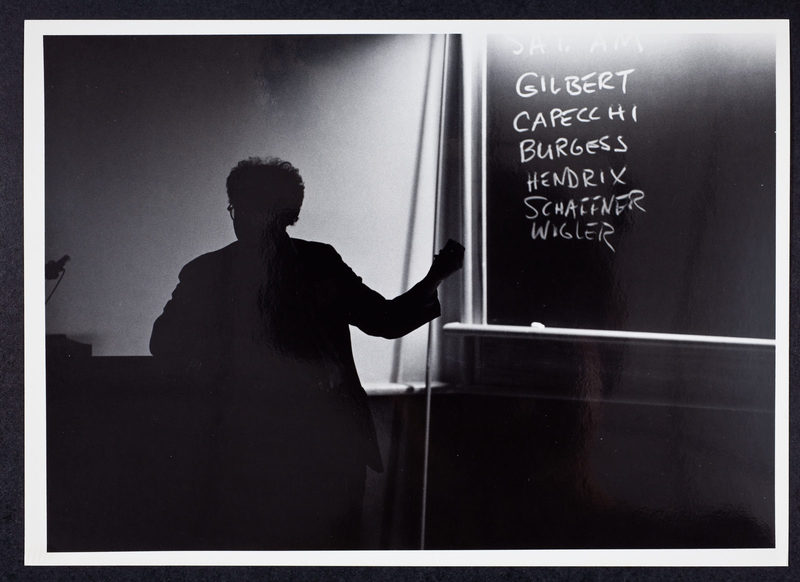 SAT. AM
GILBERT
CAPECCHI
BURGESS
HENDRIX
SCHAFFNER
WIGLER